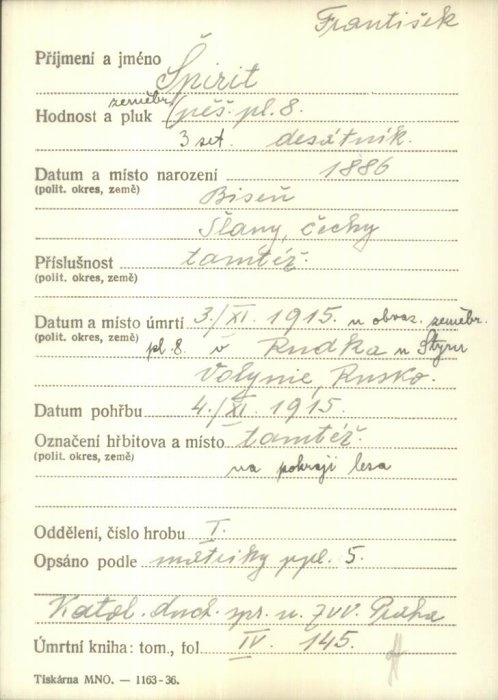 František
Příjmení a jméno Špirit
zeměbr.
Hodnost a pluk (pěš. pl. 8.
3 set. desátník.
Datum a místo narození 1886
(polit. okres, země)
Biseň
Slany, čechy
Příslušnost tamtéž.
(polit. okres, země)
Datum a místo úmrtí 3./XI. 1915. u obvaz. zeměbr.
(polit. okres, země)
pl. 8. v Rudka u Styru
Volynie, Rusko.
Datum pohřbu 4./XI. 1915.
Označení hřbitova a místo tamtéž.
(polit. okres, země)
na pokraji lesa
Oddělení, číslo hrobu I.
Opsáno podle matriky ppl. 5.
Katol. duch. spr. u ZVV. Praha
Úmrtní kniha: tom., fol IV. 145.
Tiskárna MNO. — 1163-36.